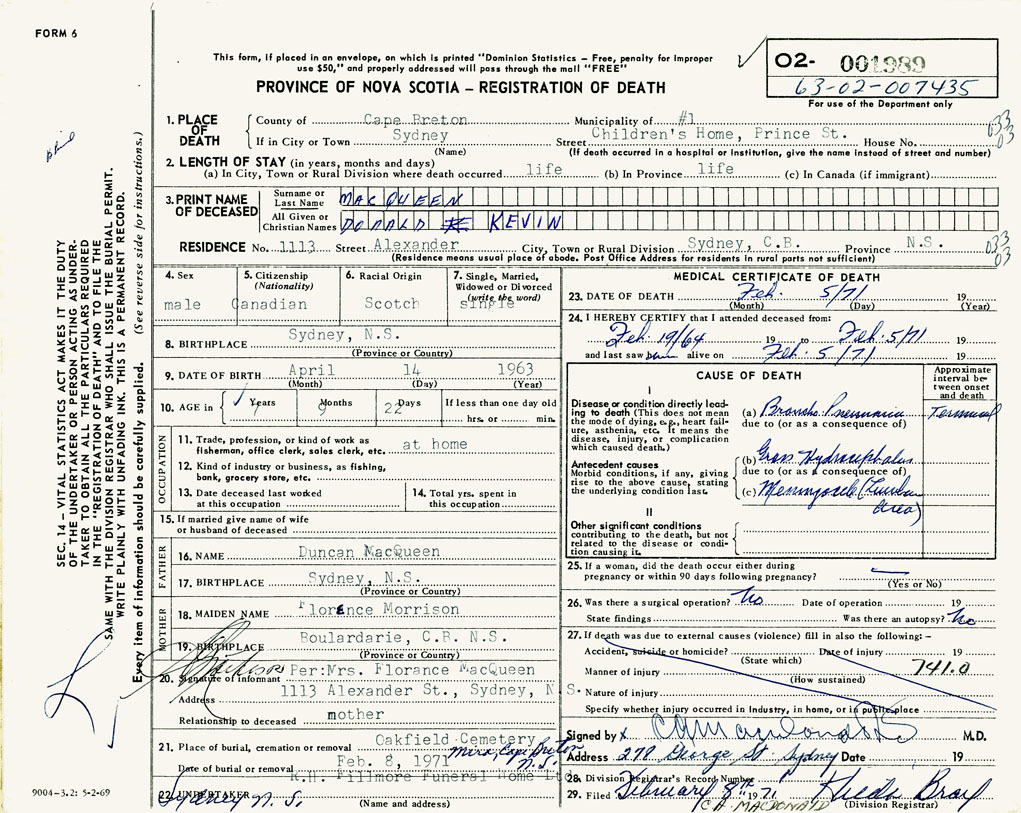 FORM 6
This form, if placed in an envelope, on which is printed "Dominion Statistics – Free, penalty for improper
use $50," and properly addressed will pass through the mail "FREE"
PROVINCE OF NOVA SCOTIA – REGISTRATION OF DEATH
02- 001989
63-02-007435
For use of the Department only
1. PLACE OF DEATH
County of Cape Breton Municipality of #1
If in City or Town Sydney Street Children's Home, Prince St. House No.
(Name) (If death occurred in a hospital or institution, give the name instead of street and number)
033
03
2. LENGTH OF STAY (in years, months and days)
(a) In City, Town or Rural Division where death occurred life (b) In Province life (c) In Canada (if immigrant)
3. PRINT NAME OF DECEASED
Surname or Last Name MACQUEEN
All Given or Christian Names DONALD KEVIN
RESIDENCE No. 1113 Street Alexander City, Town or Rural Division Sydney, C.B. Province N.S.
(Residence means usual place of abode. Post Office Address for residents in rural parts not sufficient)
033
03
4. Sex
male
5. Citizenship
(Nationality)
Canadian
6. Racial Origin
Scotch
7. Single, Married, Widowed or Divorced
(write the word)
single
8. BIRTHPLACE Sydney, N.S.
(Province or Country)
9. DATE OF BIRTH April 14 1963
(Month) (Day) (Year)
10. AGE in 7 Years 9 Months 22 Days If less than one day old
hrs. or min.
OCCUPATION
11. Trade, profession, or kind of work as
fisherman, office clerk, sales clerk, etc. at home
12. Kind of industry or business, as fishing,
bank, grocery store, etc.
13. Date deceased last worked
at this occupation
14. Total yrs. spent in
this occupation
15. If married give name of wife
or husband of deceased
FATHER
16. NAME Duncan MacQueen
17. BIRTHPLACE Sydney, N.S.
(Province or Country)
MOTHER
18. MAIDEN NAME Florence Morrison
19. BIRTHPLACE Boulardarie, C.B. N.S.
(Province or Country)
20. Signature of informant Per:Mrs. Florance MacQueen
Address 1113 Alexander St., Sydney, N.S.
Relationship to deceased mother
21. Place of burial, cremation or removal Oakfield Cemetery
Mira, Cape Breton
N.S.
Date of burial or removal Feb. 8, 1971
22. UNDERTAKER R.H. Fillmore Funeral Home Ltd
Sydney N.S.
(Name and address)
MEDICAL CERTIFICATE OF DEATH
23. DATE OF DEATH Feb. 5/71 19
(Month) (Day) (Year)
24. I HEREBY CERTIFY that I attended deceased from:
Feb. 19/64 19 to Feb. 5/71 19
and last saw him alive on Feb. 5/71 19
CAUSE OF DEATH
Approximate interval between onset and death
I
Disease or condition directly leading to death (This does not mean the mode of dying, e.g., heart failure, asthenia, etc. It means the disease, injury, or complication which caused death.)
(a) Broncho Pneumonia Terminal
due to (or as a consequence of)
Antecedent causes
Morbid conditions, if any, giving rise to the above cause, stating the underlying condition last.
(b) Gross Hydrocephalus
due to (or as a consequence of)
(c) Meningocele (Lumbar
Area)
II
Other significant conditions
contributing to the death, but not related to the disease or condition causing it.
25. If a woman, did the death occur either during
pregnancy or within 90 days following pregnancy?
(Yes or No)
26. Was there a surgical operation? No Date of operation 19
State findings Was there an autopsy? No
27. If death was due to external causes (violence) fill in also the following: –
Accident, suicide or homicide? Date of injury 19
(State which)
Manner of injury 741.0
(How sustained)
Nature of injury
Specify whether injury occurred in Industry, in home, or in public place
Signed by x M.D.
Address 278 George St. Sydney Date 19
28. Division Registrar's Record Number
29. Filed February 8th 1971
C.A. MACDONALD
(Division Registrar)
SEC. 14 – VITAL STATISTICS ACT MAKES IT THE DUTY
OF THE UNDERTAKER OR PERSON ACTING AS UNDER-
TAKER TO OBTAIN ALL THE PARTICULARS REQUIRED
IN THE "REGISTRATION OF DEATH" AND TO FILE THE
SAME WITH THE DIVISION REGISTRAR WHO SHALL ISSUE THE BURIAL PERMIT.
WRITE PLAINLY WITH UNFADING INK. THIS IS A PERMANENT RECORD.
Every item of information should be carefully supplied. (See reverse side for instructions.)
9004–3.2: 5-2-69